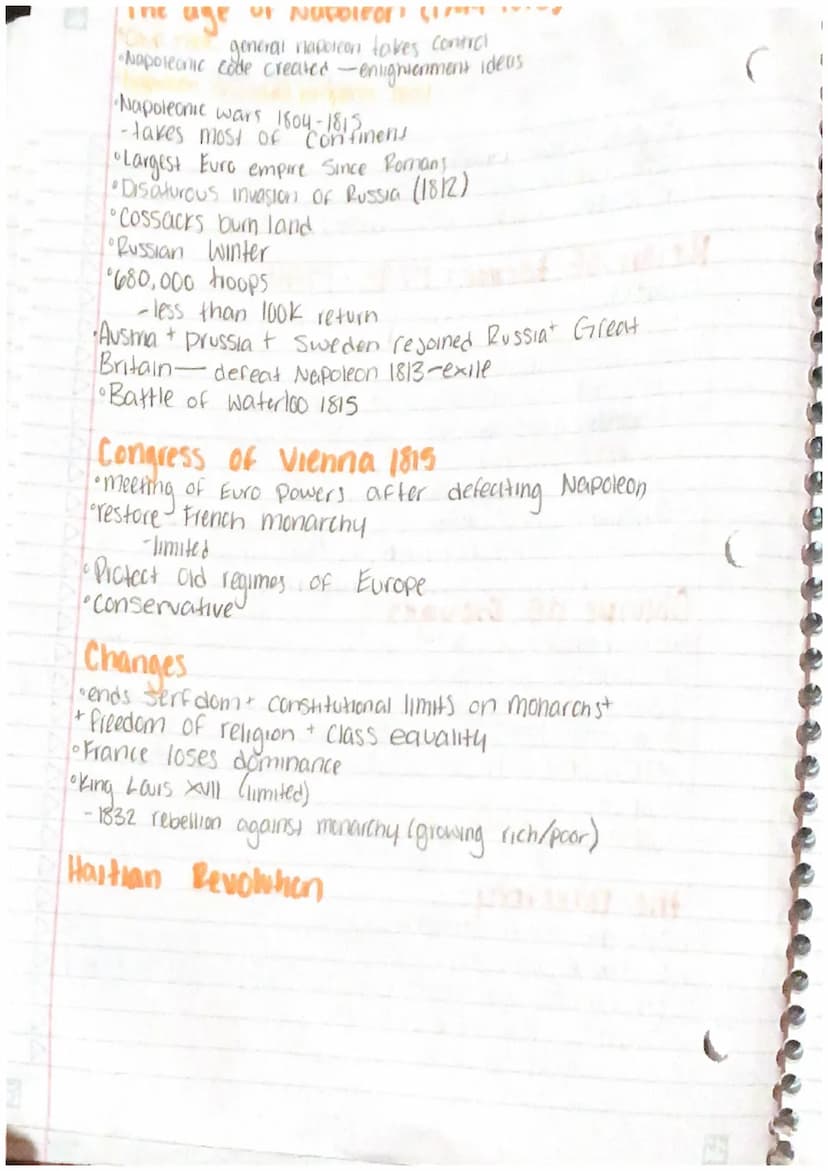 The age of Napoleon (1799
general napoleon takes control
•Napoleonic code created —enlightenment ideas
•Napoleonic wars 1804-1815
-takes most of continent
•Largest Euro empire since Romans
•Disaturous invasion of Russia (1812)
•Cossacks burn land
•Russian winter
•680,000 troops
-less than 100K return
•Austria + prussia + Sweden rejoined Russia+ Great
Britain— defeat Napoleon 1813-exile
•Battle of Waterloo 1815
Congress of Vienna 1815
•meeting of Euro powers after defeating Napoleon
•restore French monarchy
-limited
•Protect old regimes of Europe
•conservative
Changes
•ends serfdom+ constitutional limits on monarchs+
+ freedom of religion + class equality
•France loses dominance
•King Louis XVII (limited)
-1832 rebellion against monarchy (growing rich/poor)
Haitian Revolution